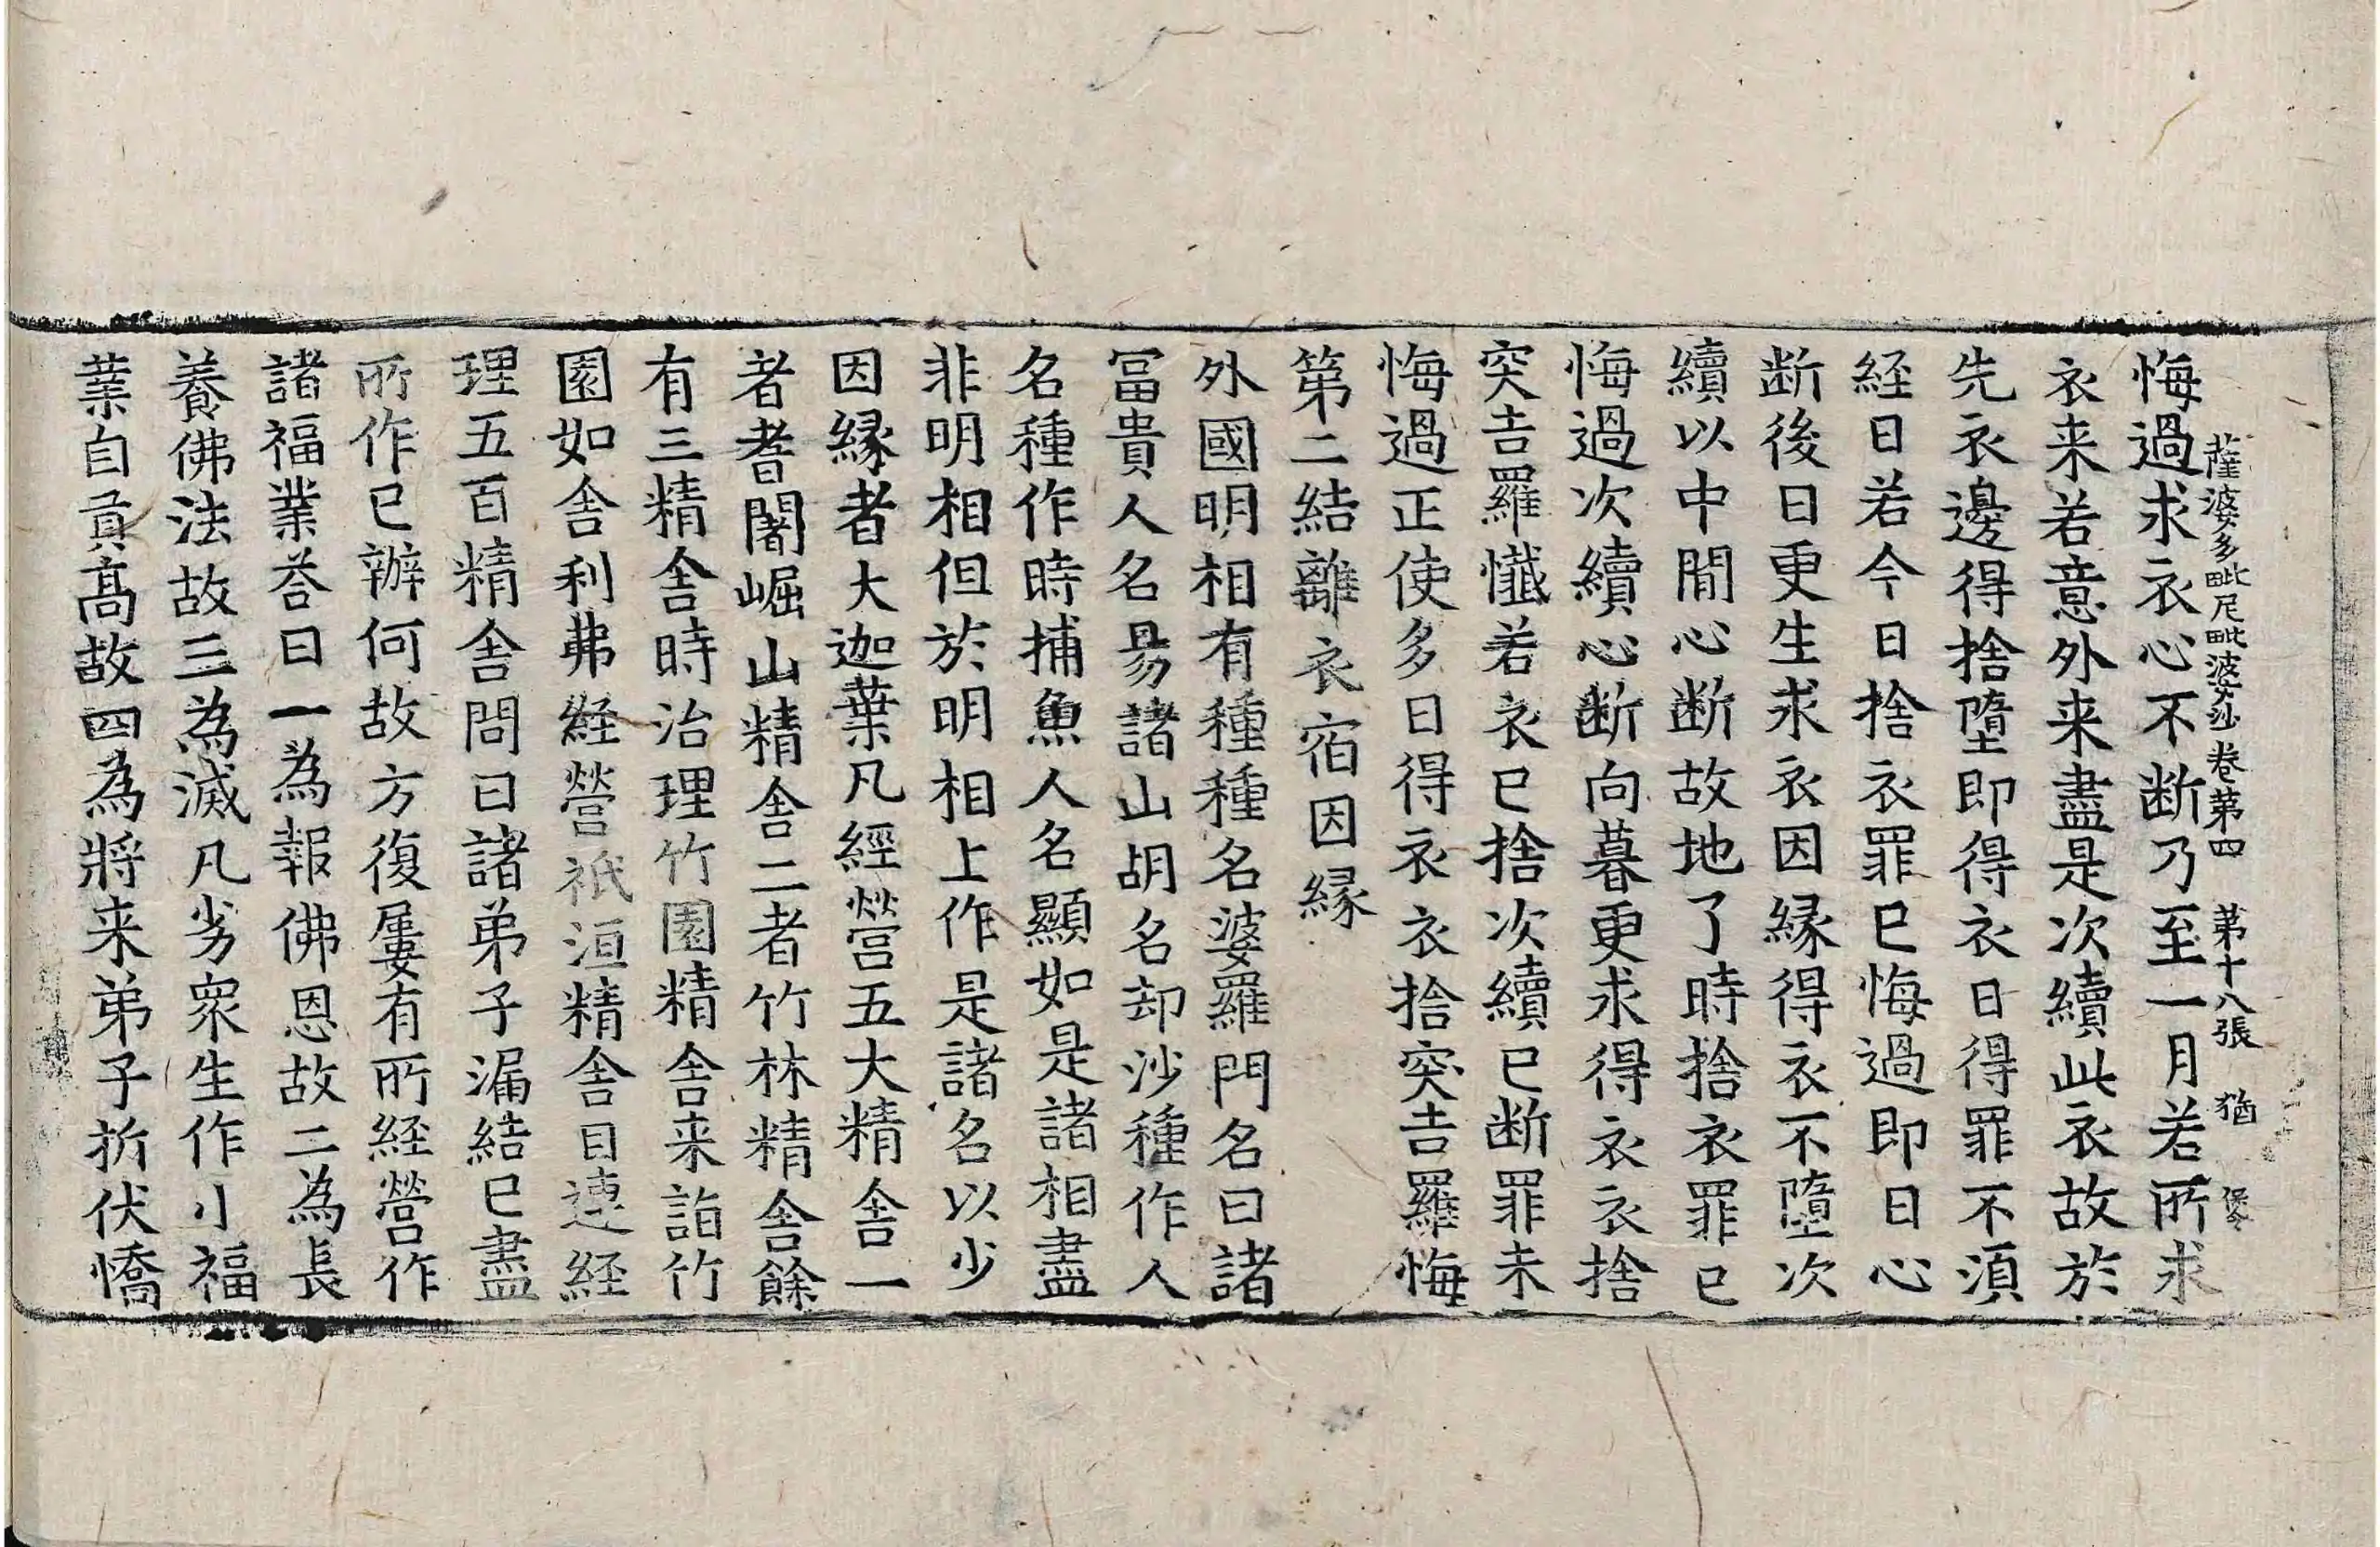 薩婆多毗尼毗婆沙卷第四　第十八張　猶
悔過求衣心不断乃至一月若所求
衣来若意外来盡是次續此衣故於
先衣邊得捨墮即得衣日得罪不湏
経日若今日捨衣罪已悔過即日心
断後日更生求衣因縁得衣不墮次
續以中間心断故地了時捨衣罪已
悔過次續心断向暮更求得衣衣捨
突吉羅懺若衣已捨次續已断罪未
悔過正使多日得衣衣捨突吉羅悔
第二結離衣宿因縁
外國明相有種種名婆羅門名曰諸
冨貴人名昜諸山胡名却沙種作人
名種作時捕魚人名顯如是諸相盡
非明相但於明相上作是諸名以少
因縁者大迦葉凡經營五大精舍一
者耆闍崛山精舍二者竹林精舍餘
有三精舍時治理竹園精舍来詣竹
園如舍利弗経營祇洹精舍目連経
理五百精舍問曰諸弟子漏結已盡
所作已辦何故方復屢有所経營作
諸福業荅曰一為報佛恩故二為長
養佛法故三為滅凡劣衆生作小福
業自貢髙故四為將来弟子折伏憍